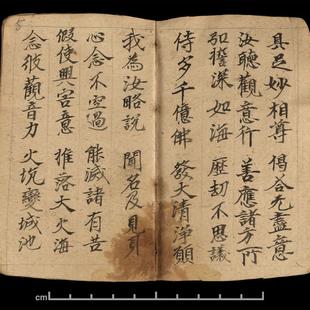 具足妙相尊 偈合无盡意
汝聽觀意行 善應諸方所
弘誓深如海 歷刧不思議
侍多千億佛 發大清淨願
我為汝略說 聞名及見身
心念不空過 能滅諸有苦
假使興害意 推落大火海
念彼觀音力 火坑變城池
5
cm